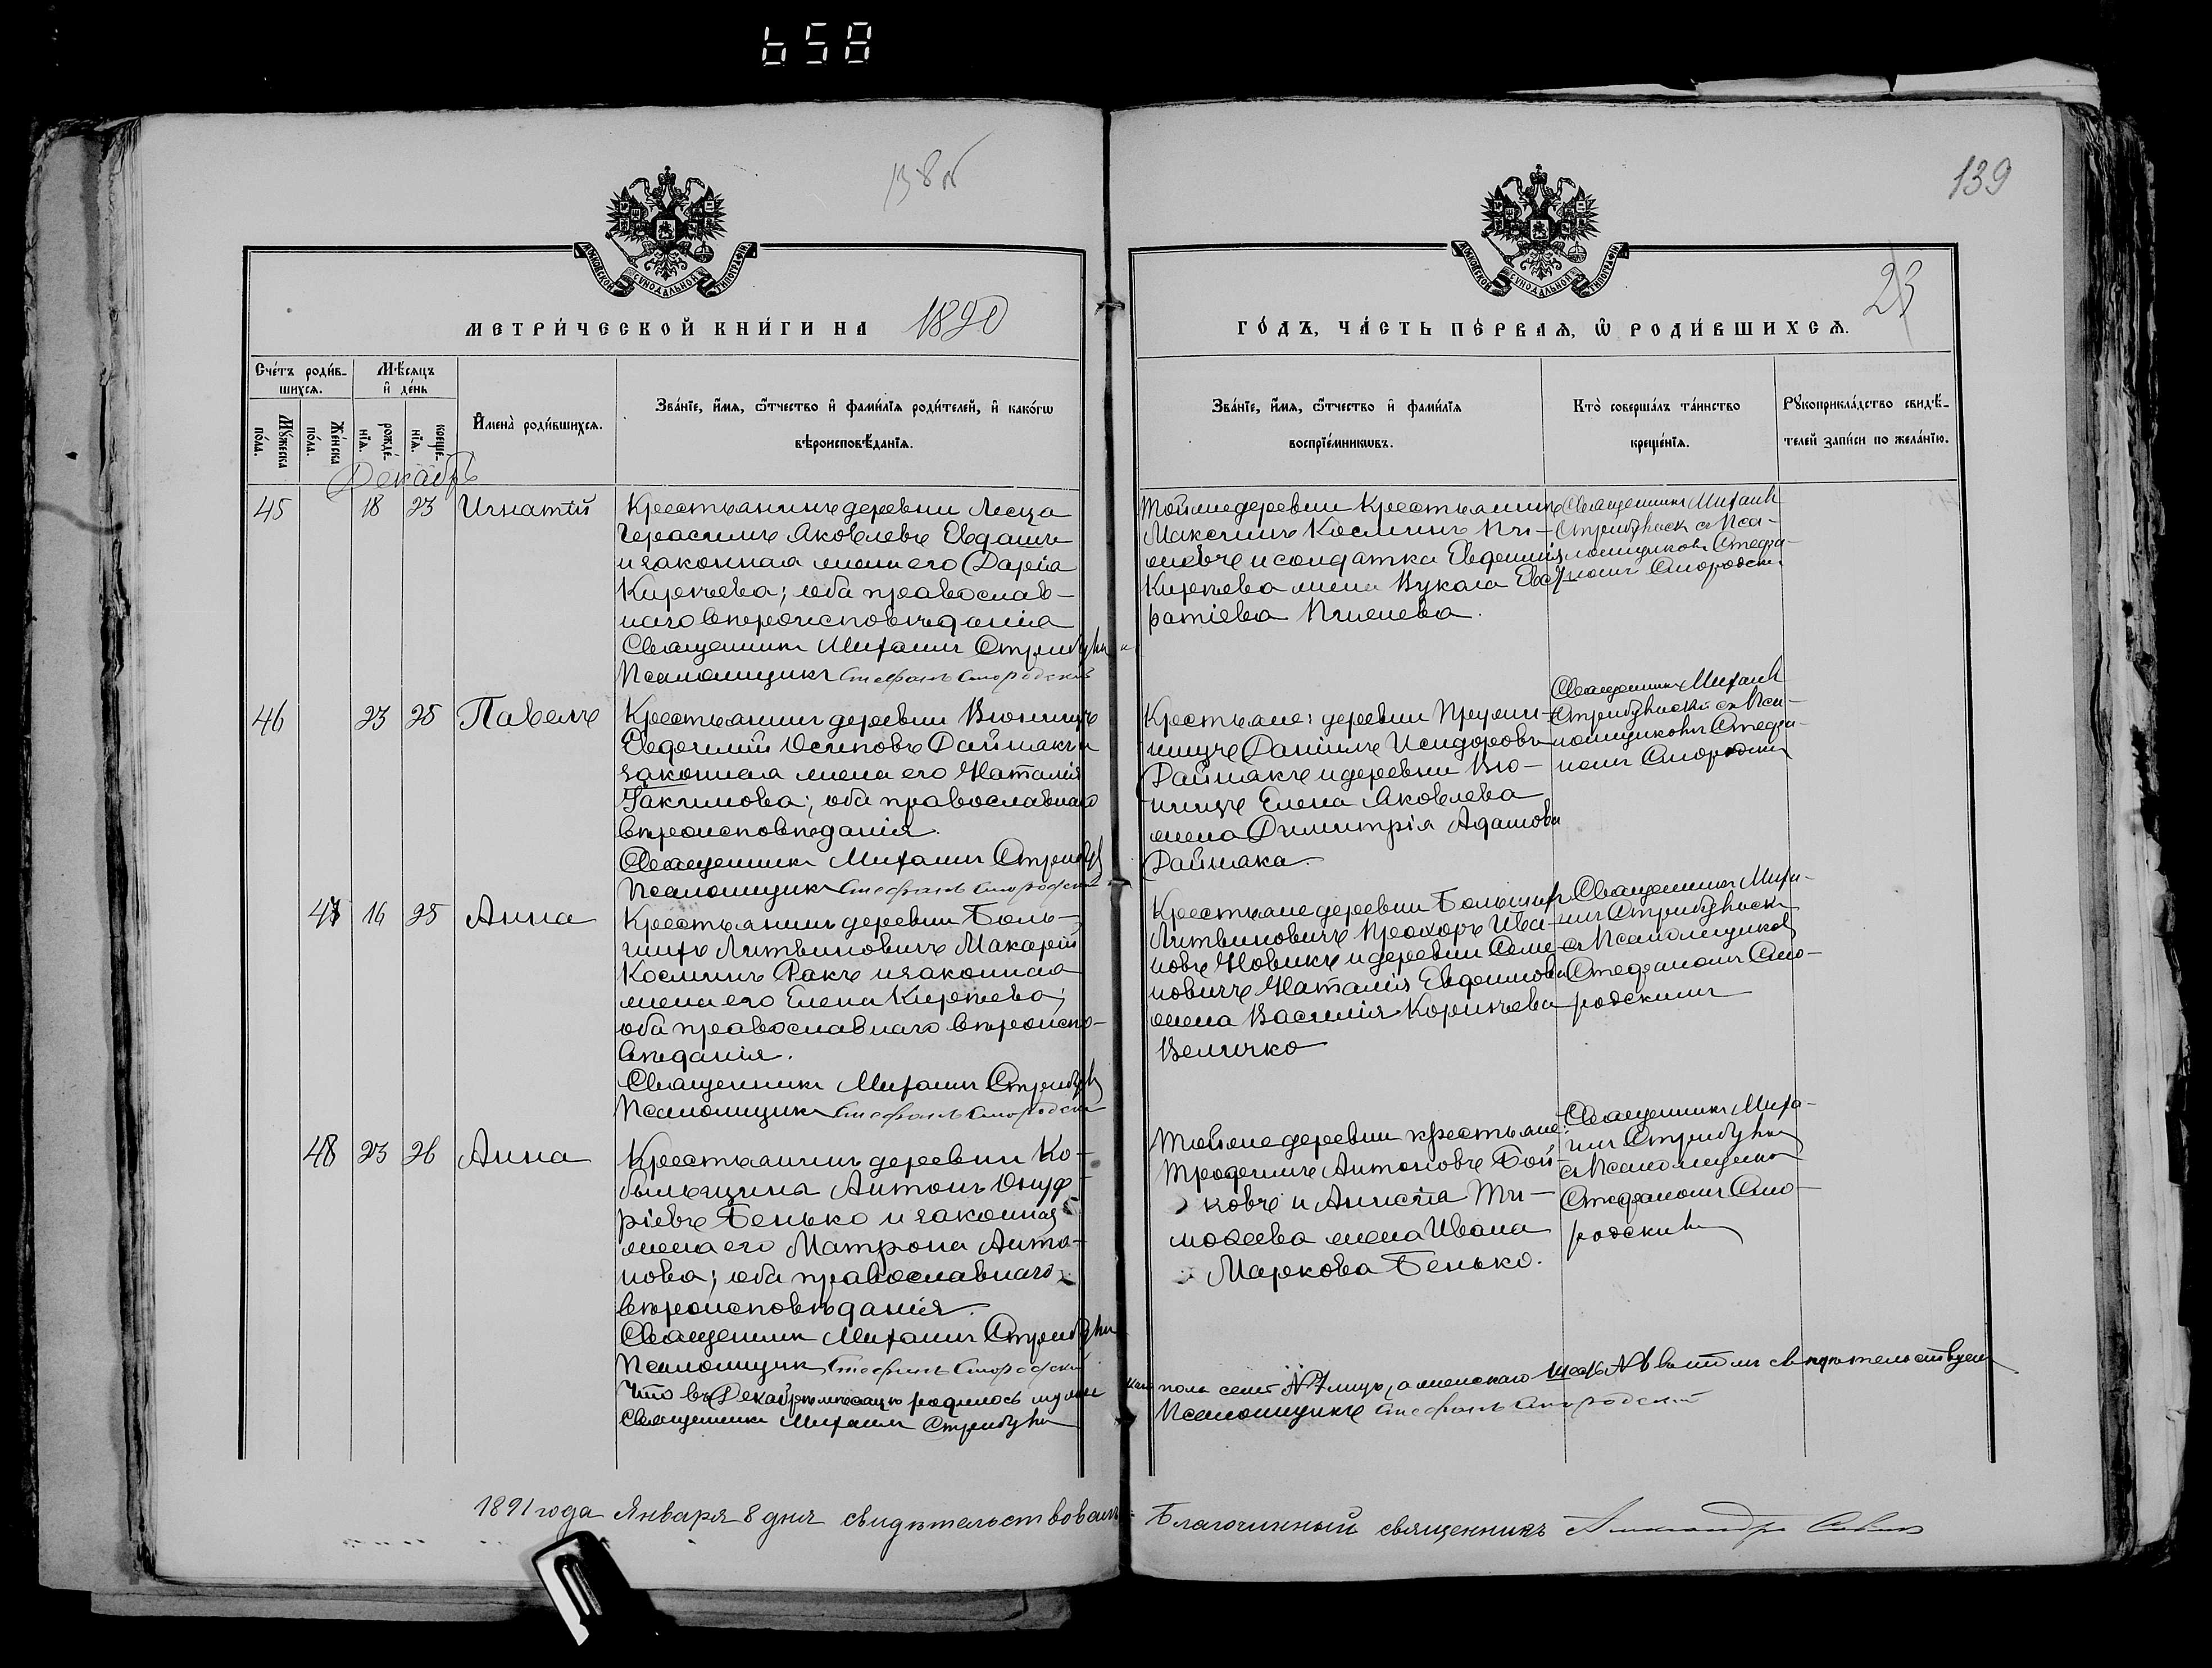 658
138об
139
23
МОСКОВСКОЙ СѴНОДАЛЬНОЙ ТИПОГРАФІИ
МОСКОВСКОЙ СѴНОДАЛЬНОЙ ТИПОГРАФІИ
МЕТРИ́ЧЕСКОЙ КНИ́ГИ НА 1890
ГО́ДЪ, ЧА́СТЬ ПЕ́РВАѦ, Ѡ҆ РОДИ́ВШИХСѦ.
Сче́тъ роди́в-
шихсѧ.
Мꙋ́жеска
по́ла.
Же́нска
по́ла.
Мѣ́сѧцъ
и҆ де́нь
рожде́-
нїѧ.
креще́-
нїѧ.
И҆мена̀ роди́вшихсѧ.
Зва́нїе, и҆́мѧ, ѻ҆́тчество и҆ фами́лїѧ роди́телей, и҆ како́гѡ
вѣроисповѣ́данїѧ.
Зва́нїе, и҆́мѧ, ѻ҆́тчество и҆ фами́лїѧ
воспрїе́мникѡвъ.
Кто̀ соверша́лъ та́инство
креще́нїѧ.
Рꙋкоприкла́дство свидѣ́-
телей за́писи по жела́нїю.
Декабрь
45 18 23 Игнатій
Крестьянинъ деревни Лисца
Герасимъ Яковлевъ Евдашъ
и законная жена его Дарія
Киреева; оба православ-
наго вѣроисповѣданія
Священникъ Михаилъ
Псаломщикъ Стефанъ Смородскій
Тойже деревни крестьянинъ
Максимъ Косминъ
и солдатка Евфимія
Киреева жена Вукола Евс-
ратіева Пчелева.
Священникъ Михаилъ
съ Пса-
ломщикомъ Стефа-
номъ Смородски
46 23 25 Павелъ
Крестьянинъ деревни Вюнищъ
Евфимій Осиповъ Дайнакъ и
законная жена его Наталія
Іакимова; оба православнаго
вѣроисповѣданія.
Священникъ Михаилъ
Псаломщикъ Стефанъ Смородскій
Крестьяне: деревни
Даніилъ Исидоровъ
Дайнакъ и деревни Вю-
нищъ Елена Яковлева
жена Димитрія Адамова
Дайнака.
Священникъ Михаилъ
съ Пса-
ломщикомъ Стефа-
номъ Смородски
47 16 25 Анна
Крестьянинъ деревни Боль-
шихъ Литвиновичъ Макарій
Косминъ Ракъ и законная
жена его Елена Киреева;
оба православнаго вѣроиспо-
вѣданія.
Священникъ Михаилъ
Псаломщикъ Стефанъ Смородскій
Крестьяне деревни Большихъ
Литвиновичъ Прохоръ Ива-
новъ Новикъ и деревни Семе-
новичъ Наталія Евфимова
жена Василія Корнѣева
Величко
Священникъ Миха-
илъ
съ Псаломщиком
Стефаномъ Смо-
родскимъ
48 23 26 Анна
Крестьянинъ деревни Ко-
быльщина Антонъ Онуф-
ріевъ Бенько и законная
жена его Матрона Анто-
нова; оба православнаго
вѣроисповѣданія.
Священникъ Михаилъ
Псаломщикъ Стефанъ Смородскій
Тойже деревни крестьяне:
Трофимъ Антоновъ Бой-
ковъ и Анисія Ти-
моѳеева жена Ивана
Маркова Бенько.
Священникъ Миха-
илъ
съ Псаломщиком
Стефаномъ Смо-
родски
Что въ Декабрѣ мѣсяцѣ родилось мужескаго пола семь № 7 лицъ, а женскаго шесть № 6 въ томъ свидѣтельствуемъ
Священникъ Михаилъ
Псаломщикъ Стефанъ Смородскій
1891 года Января 8 дня свидѣтельствовалъ Благочинный священникъ